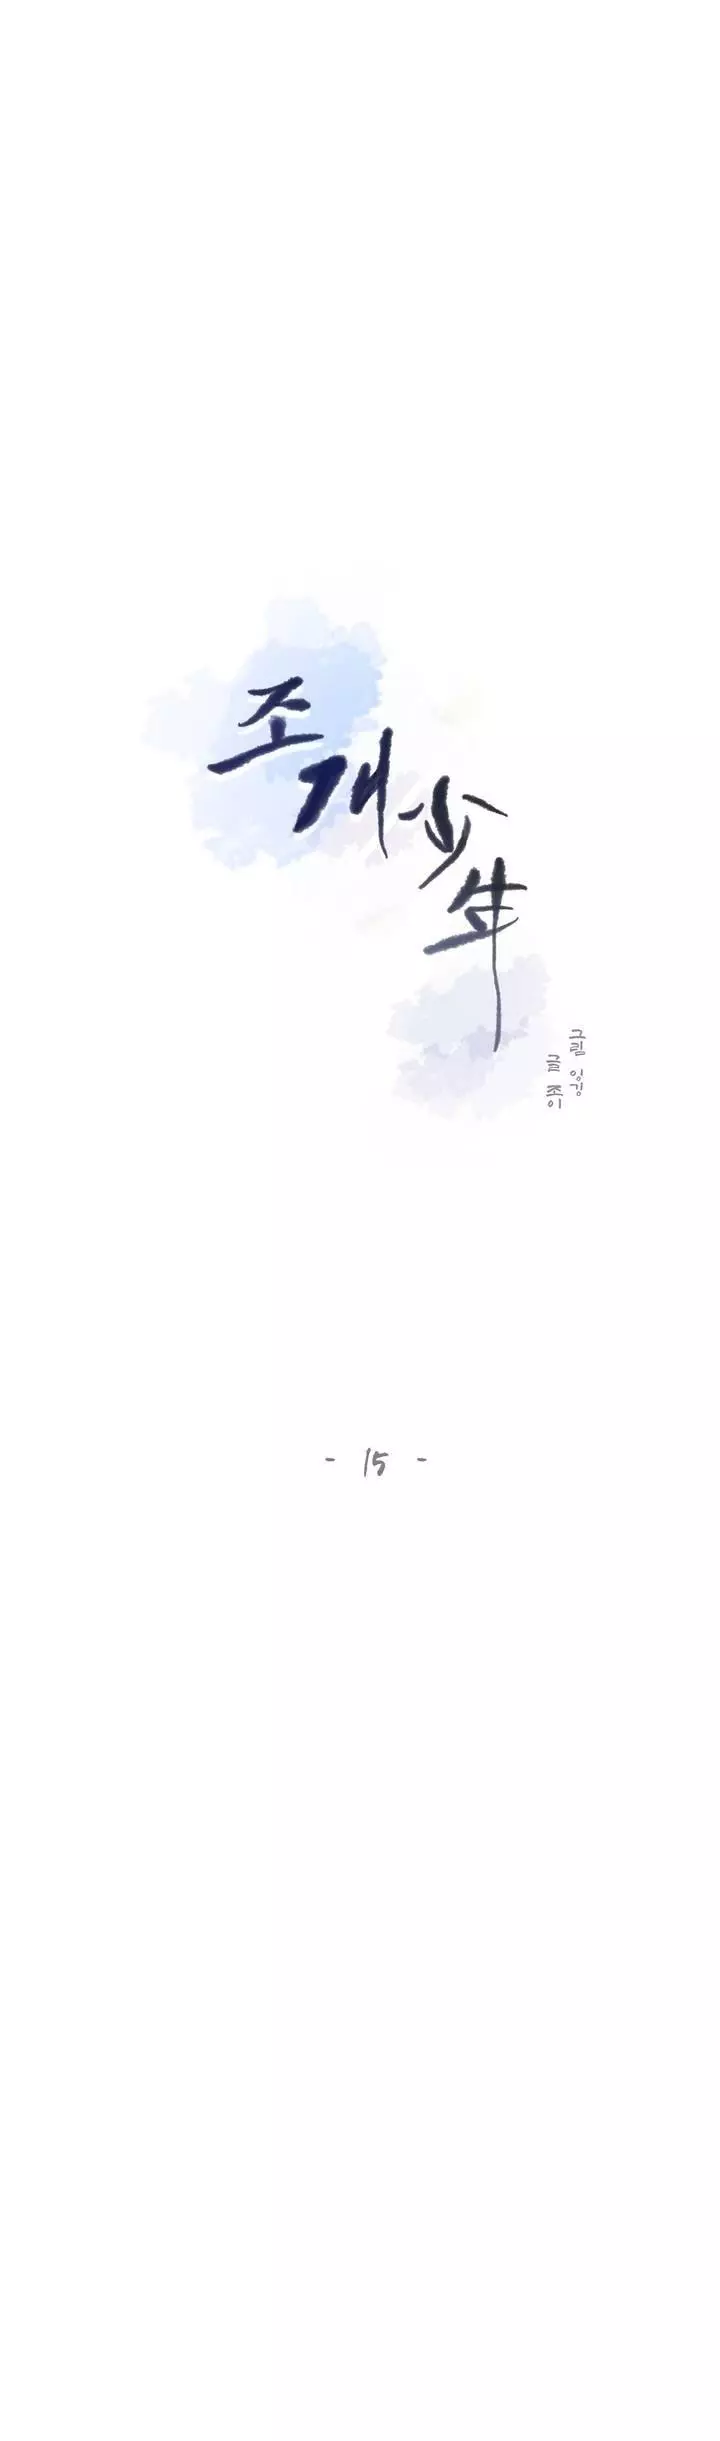 조개少年
그림 잉깅
글 쪼이
- 15 -